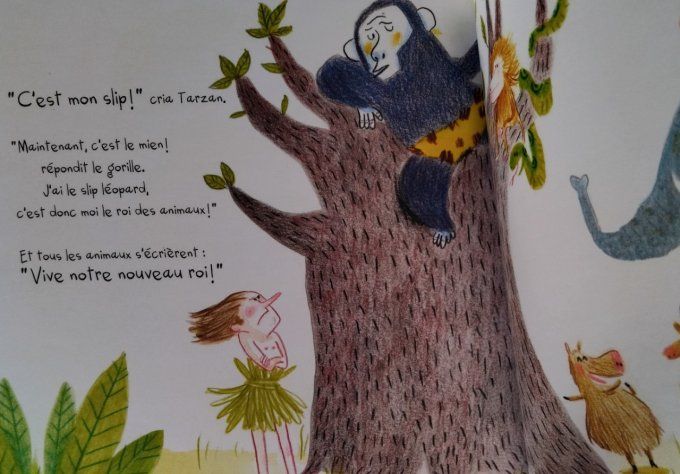 "C'est mon slip!" cria Tarzan.
"Maintenant, c'est le mien!
répondit le gorille.
J'ai le slip léopard,
c'est donc moi le roi des animaux!"
Et tous les animaux s'écrièrent :
"Vive notre nouveau roi!"